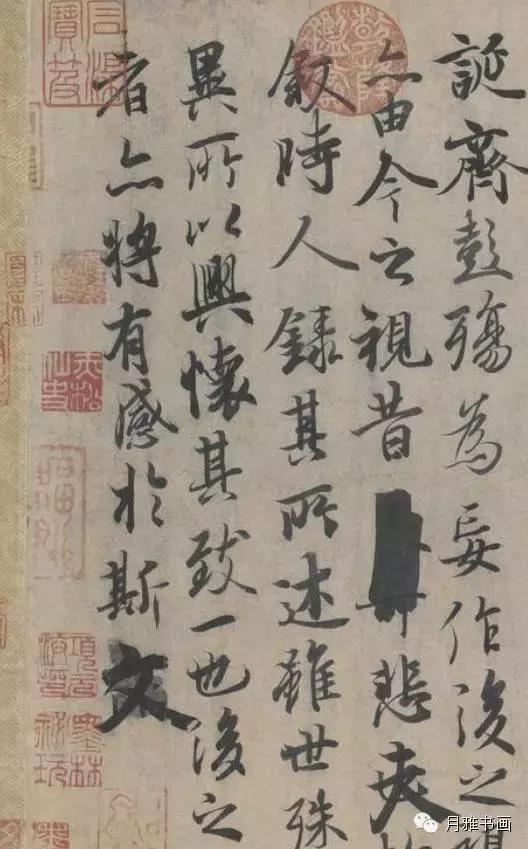 誕齊彭殤為妄作後之
亦由今之視昔悲夫
敘時人錄其所述雖世殊
異所以興懷其致一也後之
者亦將有感於斯文
月雅书画